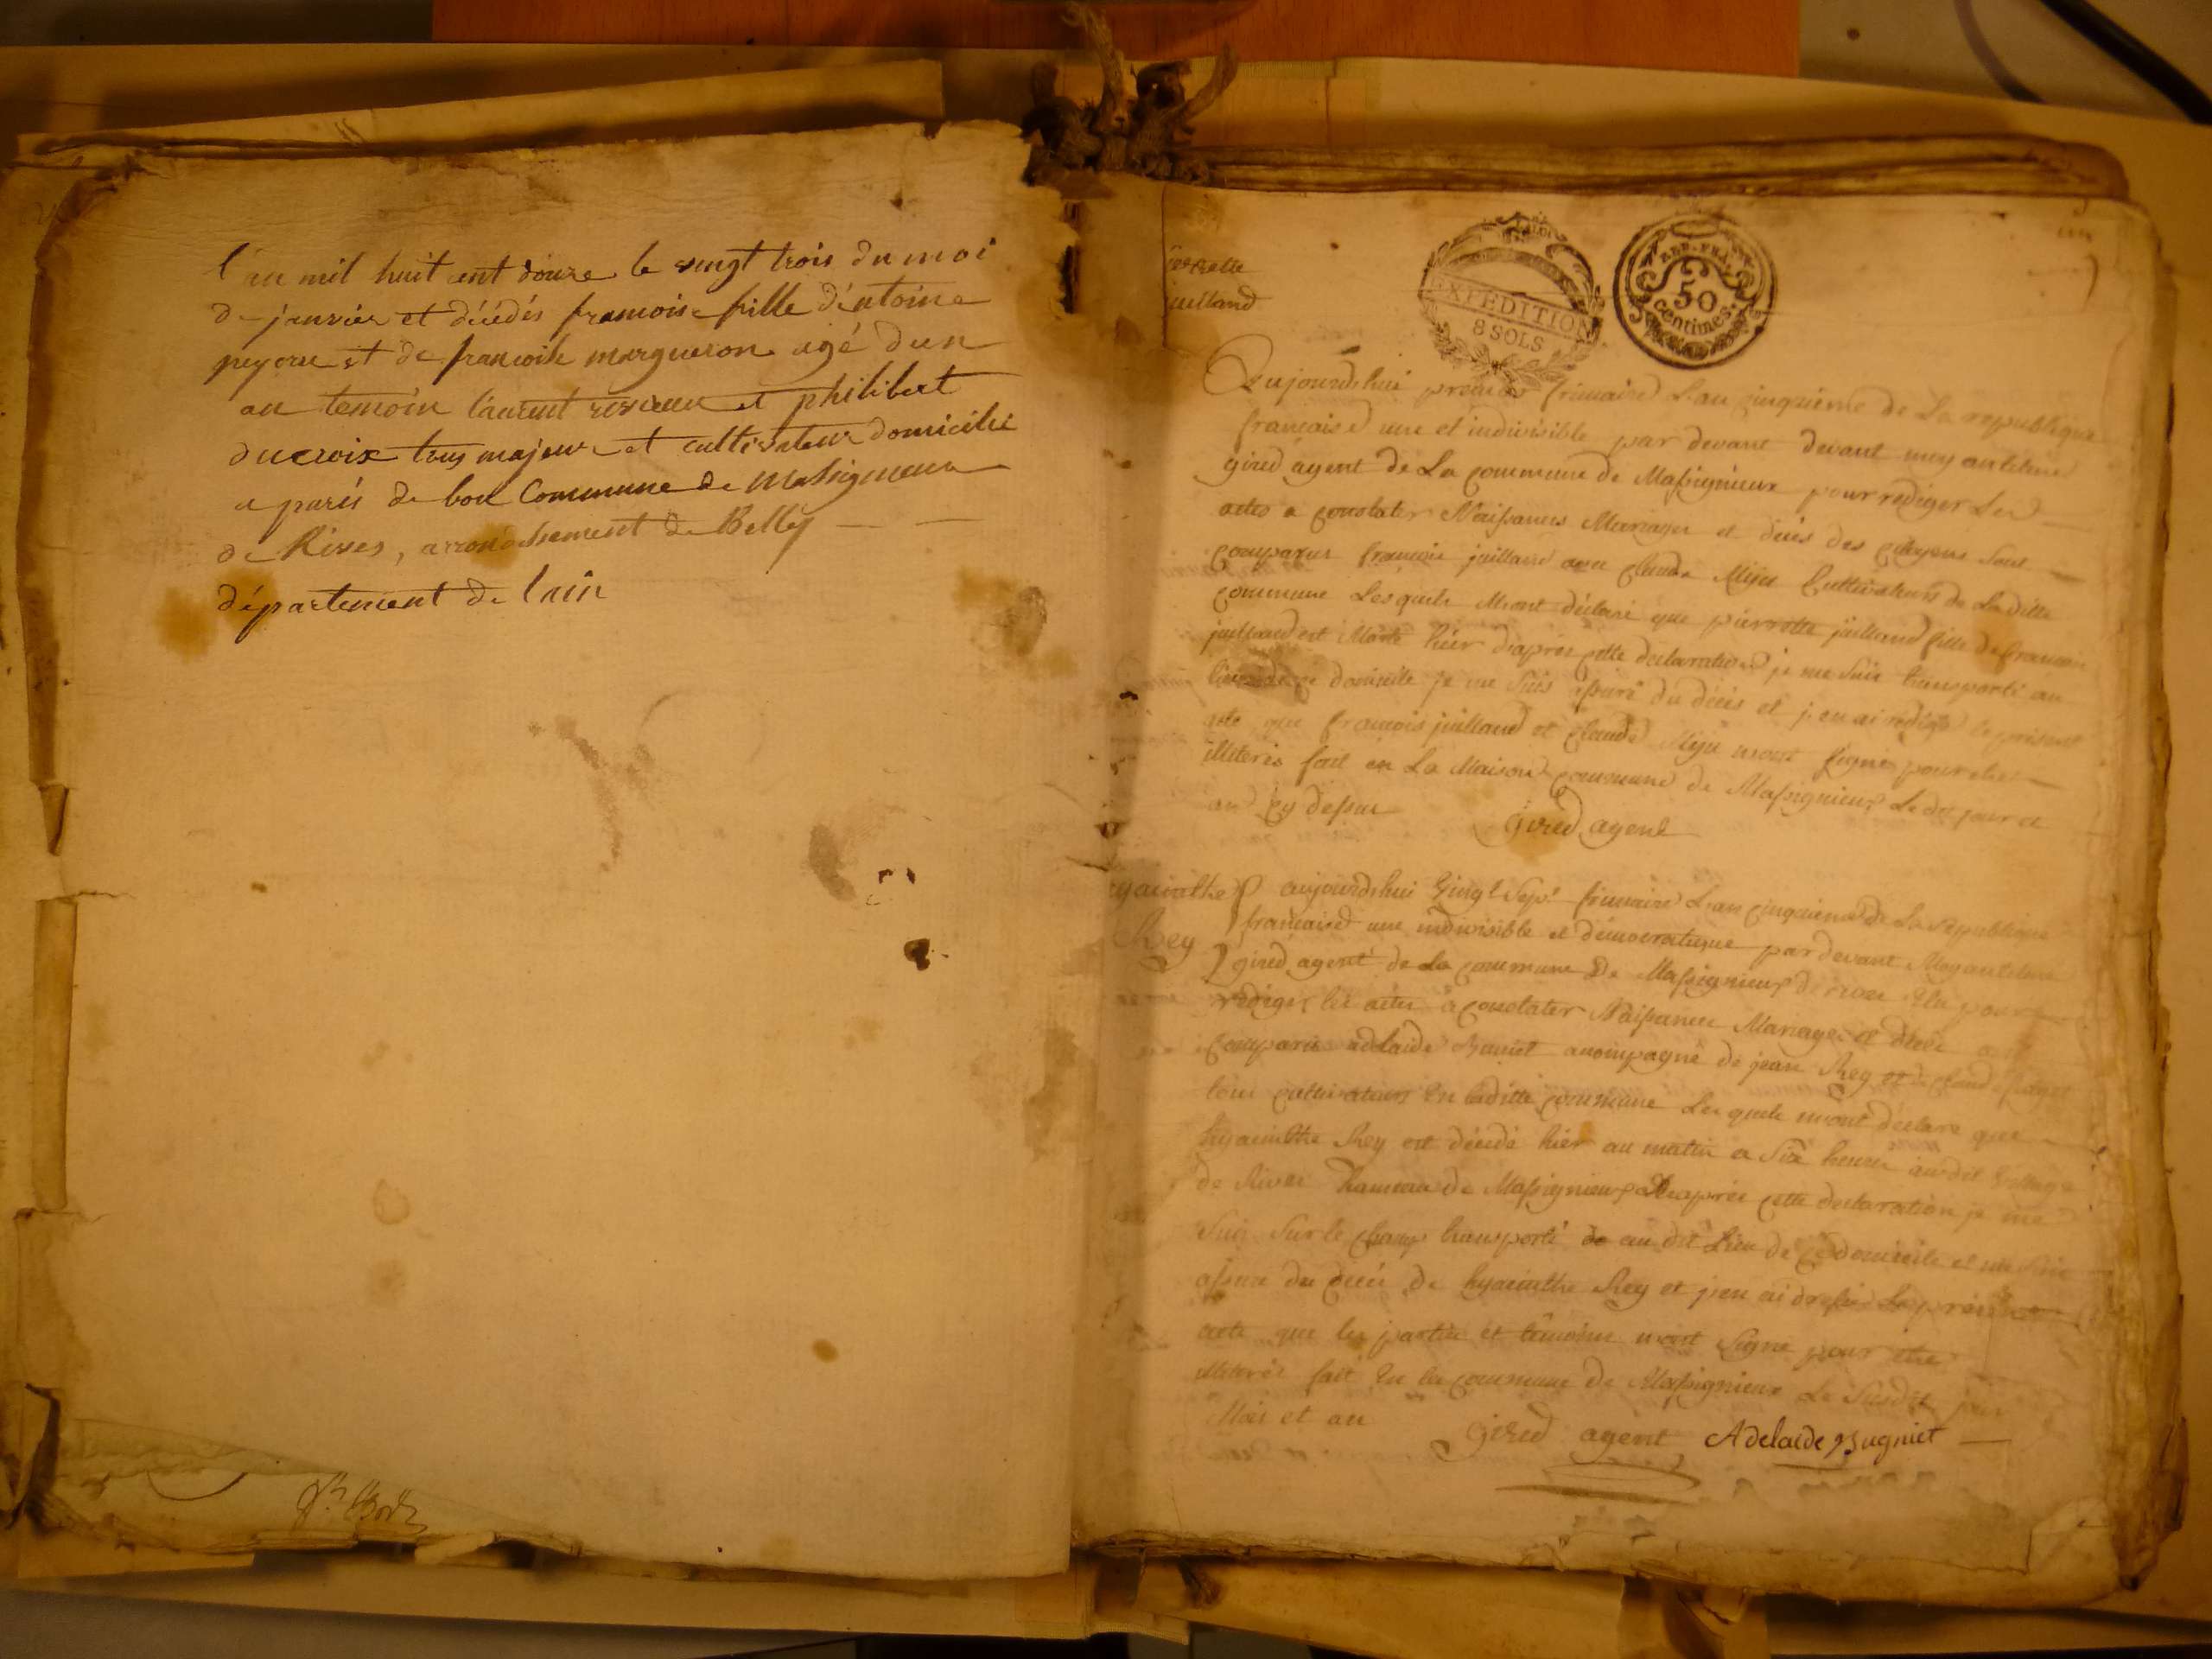 l'an mil huit cent douze le vingt trois du moi
de janvier et décédés francoise fille d'entoine
et de francoise margueron agé dun
an temoin laurent et philibert
ducroix tous majeur et cultivateur domicilie
a paris de bon Commune de Massigneux
de Rives, arrondissement de Belley
département de lain
EXPEDITION
8 SOLS
REP. FRA.
50
centimes.
Aujourdhui premier frimaire L'an cinquieme de La republique
francaise une et indivisible par devant devant moy antelme
gired agent de La commune de Massignieux pour rediger Les
actes a constater Naissances Mariages et décés des citoyens sont
comparus francois juilland avec claude Miju Cultivateurs de Laditte
commune Lesquels Mont déclaré que pierrette juilland fille de francois
juilland est Morte hier d'apres cette declaration je me suis transporté au
lieu de ce domicile je me suis assuré du décés et j'en ai redigé le present
acte que francois juilland et claude Miju mont signé pour etre
illiterés fait en La Maison commune de Massignieux Le dit jour et
an cy dessus
gired agent
hyacinthe
Rey
aujourdhui vingt sept frimaire L'an cinquieme de La republique
francaise une indivisible et démocratique par devant Moy antelme
gired agent de La commune De Massignieux de rives elu pour
rediger les actes a constater Naissances Mariages et décés ont
comparu adelaide Bugniet accompagné de jean Rey et claude
tous cultivateurs en laditte commune Lesquels mont declare que
hyacinthe Rey est décédé hier au matin a six heures audit village
de Rives hameau de Massignieux D'apres cette declaration je me
suis sur le champ transporté de au dit Lieu de ce domicile et me suis
assuré du décés de hyacinthe Rey et j'en ai dressé Le présent
acte que les parties et témoins mont signe pour etre
illiterés fait en la commune de Massignieux Le Susdit jour
Mois et an
gired agent Adelaide Bugniet